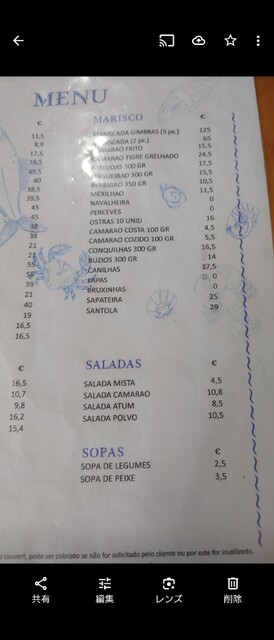 MENU
€
11,5
8,9
17,5
16,5
49,5
40
38,5
39,5
45
45
38
38
21
21
55
55
39
21
40
19
16,5
16,5
€
16,5
10,7
9,8
16,2
15,4
MARISCO €
MARISCADA GIMBRAS (5 px.) 125
MARISCADA (2 px.) 65
CAMARAO FRITO 15,5
CAMARAO TIGRE GRELHADO 24,5
300 GR 17,5
LINGUEIRAO 300 GR 15,5
BERBIGAO 350 GR 10,5
MEXILHAO 11,5
NAVALHEIRA 0
PERCEVES 0
OSTRAS 10 UNID 16
CAMARAO COSTA 100 GR 4,5
CAMARAO COZIDO 100 GR 5,5
CONQUILHAS 300 GR 16,5
BUZIOS 300 GR 14
CANILHAS 17,5
LAPAS 0
BRUXINHAS 0
SAPATEIRA 25
SANTOLA 29
SALADAS €
SALADA MISTA 4,5
SALADA CAMARAO 10,8
SALADA ATUM 8,5
SALADA POLVO 10,5
SOPAS €
SOPA DE LEGUMES 2,5
SOPA DE PEIXE 3,5
o couvert, pode ser cobrado se não for solicitado pelo cliente ou por este for inutilizado.
共有 編集 レンズ 削除